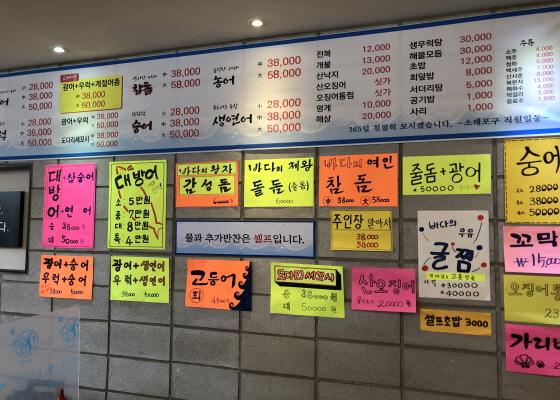 어
소 28,000
중 38,000
대 50,000
광어+우럭+계절어종
中 38,000
大 50,000
참돔
中 38,000
大 58,000
농어
中 38,000
大 50,000
럭
小 28,000
中 38,000
大 50,000
광어+우럭
도다리세꼬시
中 38,000
大 50,000
숭어
中 38,000
大 50,000
생연어
中 38,000
大 50,000
전복 12,000
개불 13,000
산낙지 20,000
산오징어 싯가
오징어통찜 싯가
멍게 10,000
해삼 20,000
생우럭탕 30,000
해물모듬 30,000
초밥 12,000
회덮밥 8,000
서더리탕 5,000
공기밥 1,000
사리 1,000
주류
소주 4,000
맥주 4,000
청하 5,000
백세주 7,000
산사춘
복분자
매화수
음료수
365일 친절히 모시겠습니다. -소래포구 직원일동-
대방어+참숭어
+연어
중 38000
대 50000
대방어
소 5만원
중 7만원
대 8만원
특 4만원
바다의 왕자
감성돔
60000
바다의 제왕
돌돔(중돔)
60000
바다의 여인
참돔
中 38000 大 58000
줄돔+광어
50000
숭어
2人 28000
3人 38000
50000
물과 추가반찬은 셀프입니다.
주인장 알아서
38000
50000
바다의 우유
굴찜
30000
40000
꼬막
₩15,000
광어+숭어
우럭+숭어
38000 50000
광어+생연어
우럭+생연어
38000 50000
고등어
(회)
43000
도다리세꼬시
중 38000원
대 50000원
산오징어
20000
셀프초밥 3000
오징어
가리비